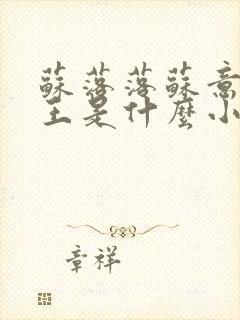 蘇落落蘇意
王是什麼小
章祥